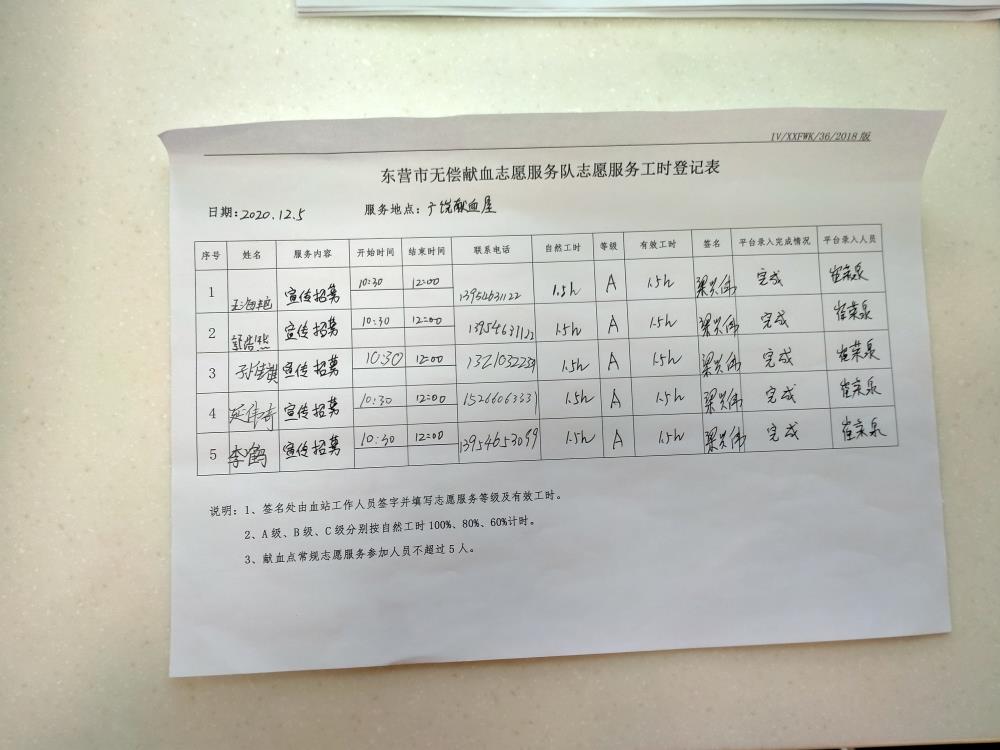 IV/XXFWK/36/2018版
东营市无偿献血志愿服务队志愿服务工时登记表
日期：2020.12.5 服务地点：广饶献血屋
序号 姓名 服务内容 开始时间 结束时间 联系电话 自然工时 等级 有效工时 签名 平台录入完成情况 平台录入人员
1 宣传招募 10:30 12:00 13954631122 1.5h A 1.5h 梁兴伟 完成 崔荣泉
2 宣传招募 10:30 12:00 13954631122 1.5h A 1.5h 梁兴伟 完成 崔荣泉
3 宣传招募 10:30 12:00 1.5h A 1.5h 梁兴伟 完成 崔荣泉
4 延伟奇 宣传招募 10:30 12:00 15266063331 1.5h A 1.5h 梁兴伟 完成 崔荣泉
5 李鹤 宣传招募 10:30 12:00 13954653099 1.5h A 1.5h 梁兴伟 完成 崔荣泉
说明：1、签名处由血站工作人员签字并填写志愿服务等级及有效工时。
2、A级、B级、C级分别按自然工时100%、80%、60%计时。
3、献血点常规志愿服务参加人员不超过5人。